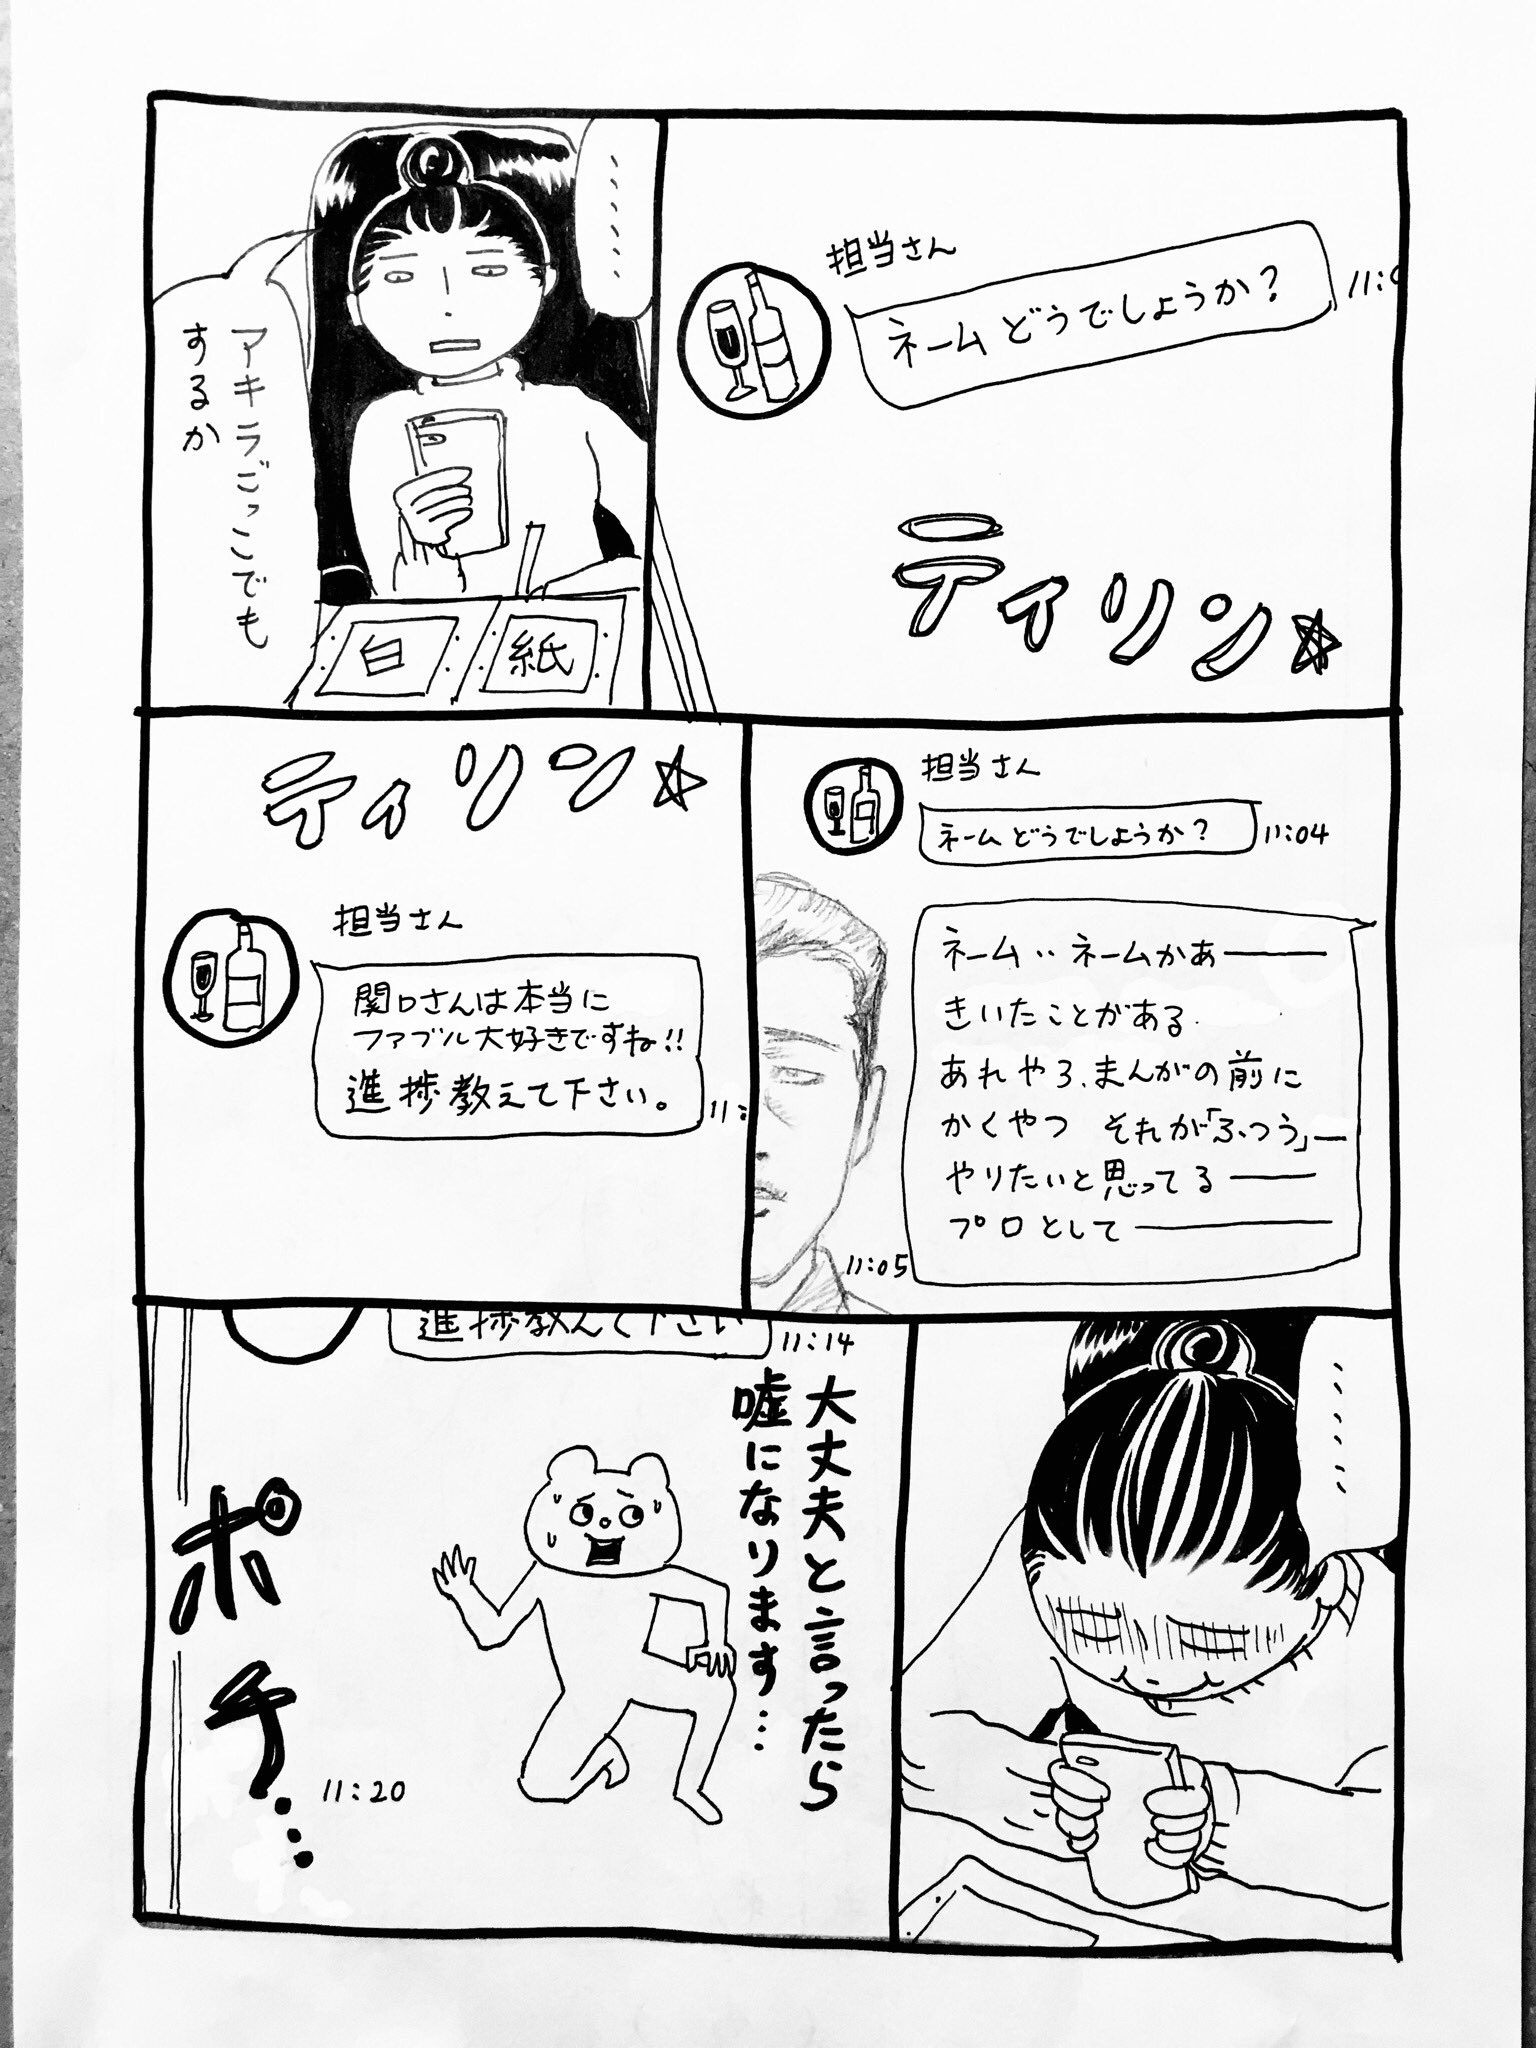 担当さん
ネームどうでしょうか？
ティリン☆
・・・・・・・
アキラごっこでも
するか
白
紙
担当さん
ネームどうでしょうか？
11:04
ネーム‥ネームかあ―――
きいたことがある
あれやろ、まんがの前に
かくやつ それが「ふつう」―
やりたいと思ってる―――
プロとして―――
11:05
ティリン☆
担当さん
関口さんは本当に
ファブル大好きですね!!
進捗教えて下さい。
11:
・・・・・・・
進捗教えて下さい
11:14
大丈夫と言ったら
嘘になります…
ポチ…
11:20